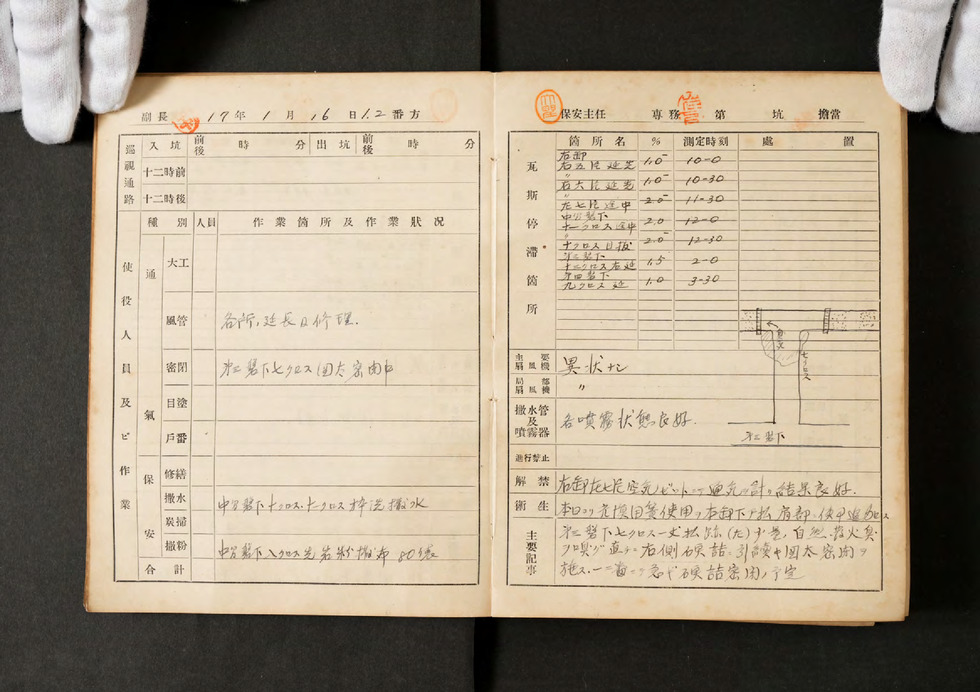 副長 17年1月16日1.2番方
巡視通路 入坑 前後 時 分 出坑 前後 時 分
十二時前
十二時後
使役人員及ビ作業
種別 人員 作業箇所及作業状況
通氣
大工
風管 各所、延長及修理.
密閉 第二盤下七クロス 団太密閉中
目塗
戸番
保安
修繕
撒水 中分盤下十クロス、十一クロス枠洗撒水
炭掃
撒粉 中分盤下八クロス先岩粉撒布 80袋
合計
保安主任 専務 第 坑 擔當
瓦斯停滯箇所
箇所名 % 測定時刻 處置
右卸
右五片延先 1.0 10-0
右六片延先 1.0 10-30
左七片途中 2.0 11-30
中分盤下
十一クロス途中 2.0 12-0
十クロス目抜 2.0 12-30
第二盤下
十二クロス右延 1.5 2-0
第四盤下
九クロス延 1.0 3-30
七クロス
第二盤下
主要扇風機 異状ナシ
局部扇風機 〃
撒水管及噴霧器 各噴霧状態良好.
進行禁止
解禁 右卸左七片空気ゼットニテ通気ヲ計リ結果良好.
衛生
主要記事
本日ヨリ 使用
第二盤下七クロス 自然発火臭
直チニ右側硬詰ニ引續キ団太密閉ヲ
施ス. 硬詰密閉ノ予定